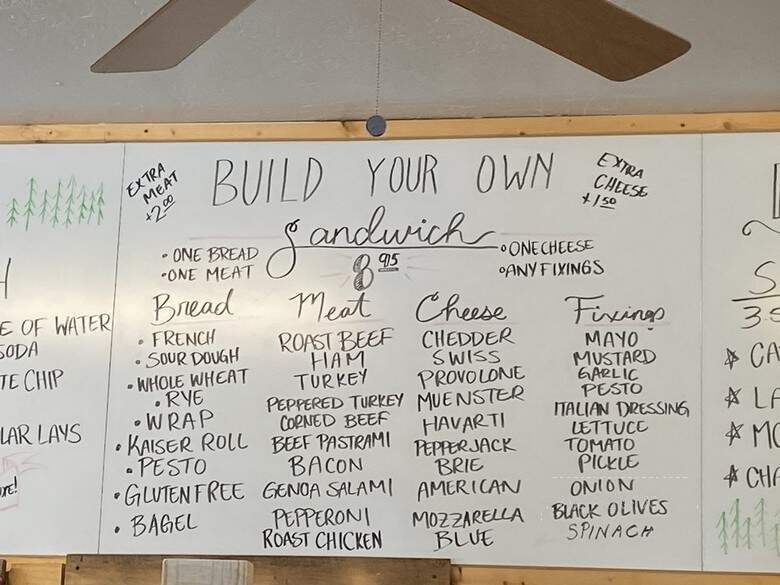 EXTRA
MEAT
+2.00
BUILD YOUR OWN
EXTRA
CHEESE
+1.50
Sandwich
• ONE BREAD
• ONE MEAT
8.95
• ONE CHEESE
• ANY FIXINGS
Bread
• FRENCH
• SOUR DOUGH
• WHOLE WHEAT
• RYE
• WRAP
• KAISER ROLL
• PESTO
• GLUTEN FREE
• BAGEL
Meat
ROAST BEEF
HAM
TURKEY
PEPPERED TURKEY
CORNED BEEF
BEEF PASTRAMI
BACON
GENOA SALAMI
PEPPERONI
ROAST CHICKEN
Cheese
CHEDDER
SWISS
PROVOLONE
MUENSTER
HAVARTI
PEPPERJACK
BRIE
AMERICAN
MOZZARELLA
BLUE
Fixings
MAYO
MUSTARD
GARLIC
PESTO
ITALIAN DRESSING
LETTUCE
TOMATO
PICKLE
ONION
BLACK OLIVES
SPINACH
E OF WATER
SODA
TE CHIP
LAR LAYS
S
3.5
CA
LA
MO
CHA